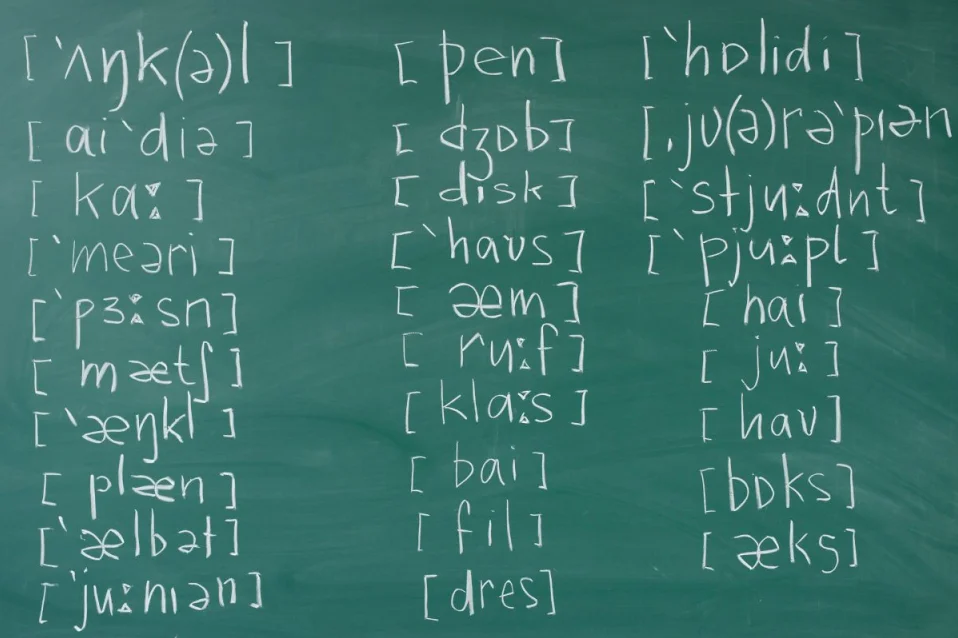 [ˈʌŋk(ə)l]
[aiˈdiə]
[kaː]
[ˈmeəri]
[ˈpɜːsn]
[mætʃ]
[ˈæŋkl]
[plæn]
[ˈælbət]
[ˈjuːnɪən]
[pen]
[dʒɒb]
[disk]
[ˈhaʊs]
[æm]
[ruːf]
[klaːs]
[bai]
[fil]
[dres]
[ˈhɒlidi]
[ˌjʊ(ə)rəˈpɪən
[ˈstjuːdnt]
[ˈpjuːpl]
[hai]
[juː]
[haʊ]
[bɒks]
[æks]